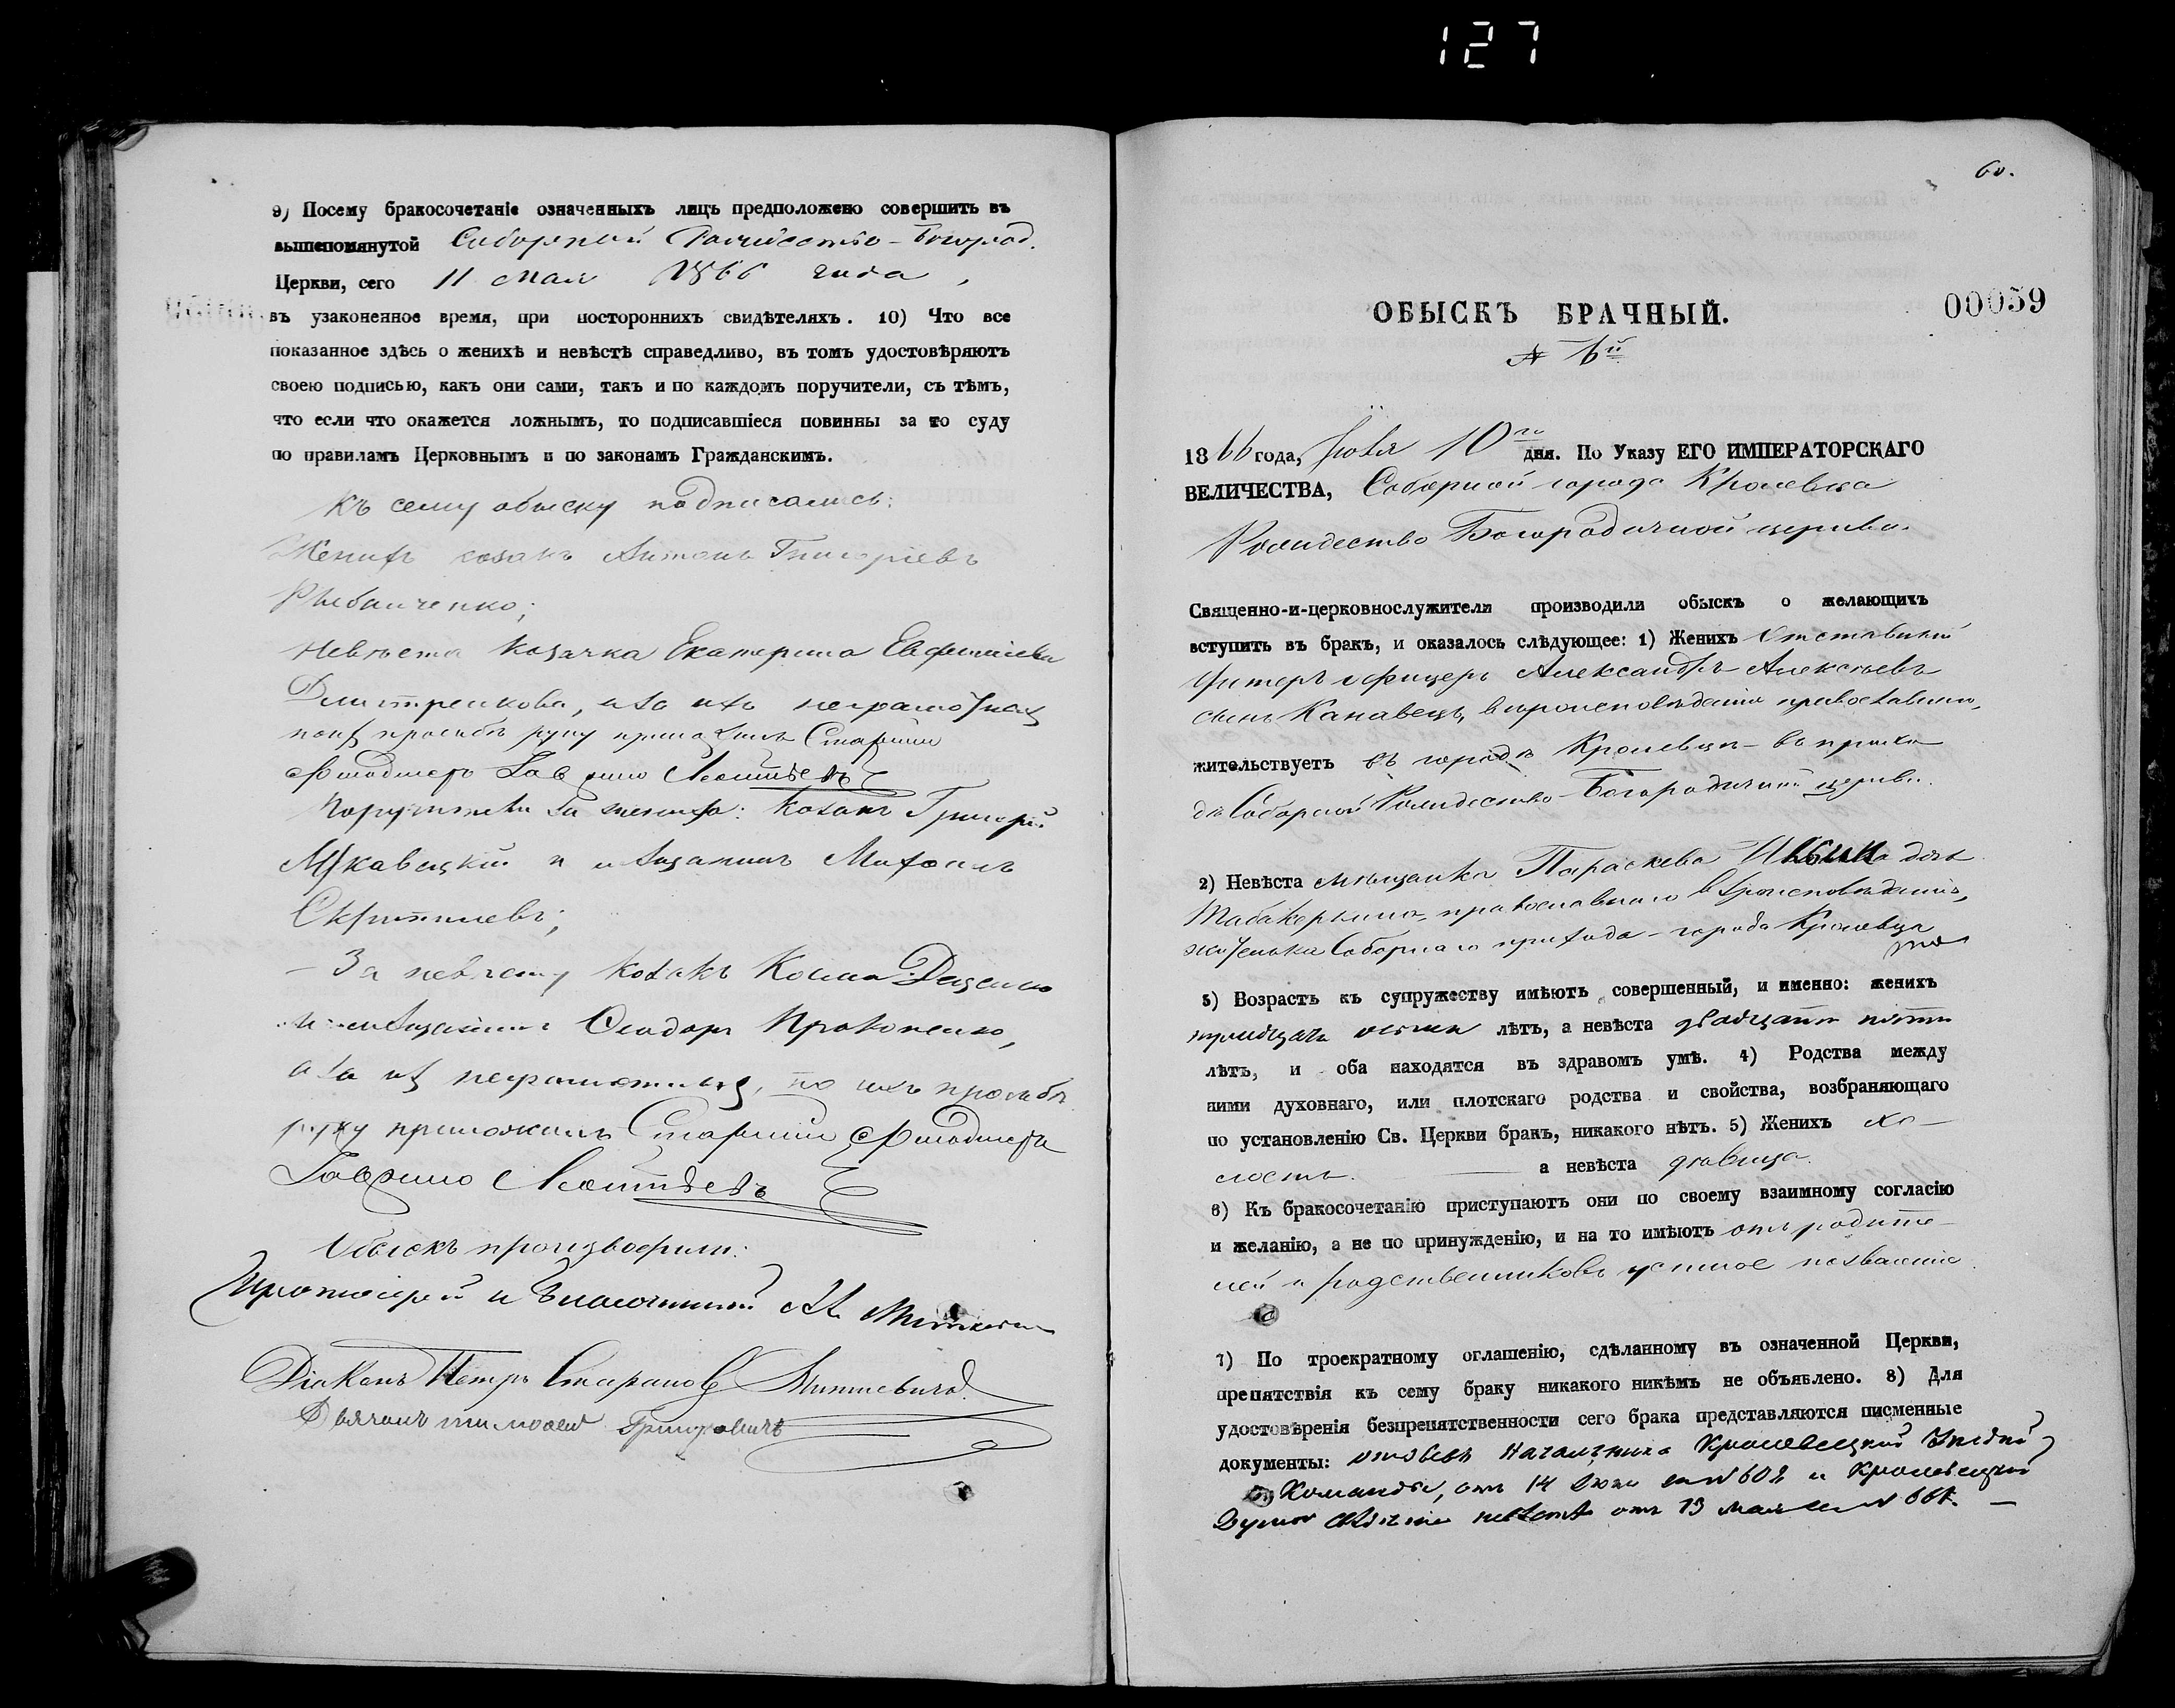 127
9) Посему бракосочетаніе означенныхъ лицъ предположено совершить въ
вышепомянутой Соборной Рождество-Богород.
Церкви, сего 11 Мая 1866 года,
въ узаконенное время, при постороннихъ свидѣтеляхъ. 10) Что все
показанное здѣсь о женихѣ и невѣстѣ справедливо, въ томъ удостовѣряютъ
своею подписью, какъ они сами, такъ и по каждомъ поручители, съ тѣмъ,
что если что окажется ложнымъ, то подписавшіеся повинны за то суду
по правиламъ Церковнымъ и по законамъ Гражданскимъ.
Къ сему обыску подписались:
Женихъ козакъ Антонъ Григоріевъ
Рыбанченко;
Невѣста козачка Екатерина
неграмотных
руку приложилъ Старшій
Фельдшеръ Гаврило Леонтьевъ
Поручители за жениха: козакъ Григорій
и мѣщанинъ Михаилъ
За невѣсту козакъ Косма
и мѣщанинъ Ѳеодоръ Прокопенко,
а за их неграмотных, по ихъ просьбѣ
руку приложилъ Старшій Фельдшеръ
Гаврило Леонтьевъ
Обыскъ производили:
Протоіерей и Благочинный
Діаконъ Петръ
Дьячокъ Тимофей Григоровичъ
60.
00059
ОБЫСКЪ БРАЧНЫЙ.
№ 6й
1866 года, Іюля 10го дня. По Указу ЕГО ИМПЕРАТОРСКАГО
ВЕЛИЧЕСТВА, Соборной города Кролевца
Рождество Богородичной церкви
Священно-и-церковнослужители производили обыскъ о желающихъ
вступить въ бракъ, и оказалось слѣдующее: 1) Женихъ Отставный
Унтеръ офицеръ Александръ Алексѣевъ
сынъ Канавецъ, вѣроисповѣданія православнаго,
жительствуетъ въ городѣ Кролевцѣ въ прихо
дѣ Соборной Рождество-Богородичной церкви.
2) Невѣста мѣщанка Параскева дочь
православнаго вѣроисповѣданія,
жителька Соборнаго прихода города Кролевца
3) Возрастъ къ супружеству имѣютъ совершенный, и именно: женихъ
тридцать восемь лѣтъ, а невѣста двадцать пять
лѣтъ, и оба находятся въ здравомъ умѣ. 4) Родства между
ними духовнаго, или плотскаго родства и свойства, возбраняющаго
по установленію Св. Церкви бракъ, никакого нѣтъ. 5) Женихъ хо-
лостъ. а невѣста дѣвица.
6) Къ бракосочетанію приступаютъ они по своему взаимному согласію
и желанію, а не по принужденію, и на то имѣютъ отъ родите-
лей и родственниковъ устное позволеніе.
7) По троекратному оглашенію, сдѣланному въ означенной Церкви,
препятствія къ сему браку никакого никѣмъ не объявлено. 8) Для
удостовѣренія безпрепятственности сего брака представляются писменные
документы: отзывъ Начальника Кролевецкой Уѣздной
Команды, отъ 14 за № 602 и Кролевецкой
Думы отъ 13 мая за № 661.